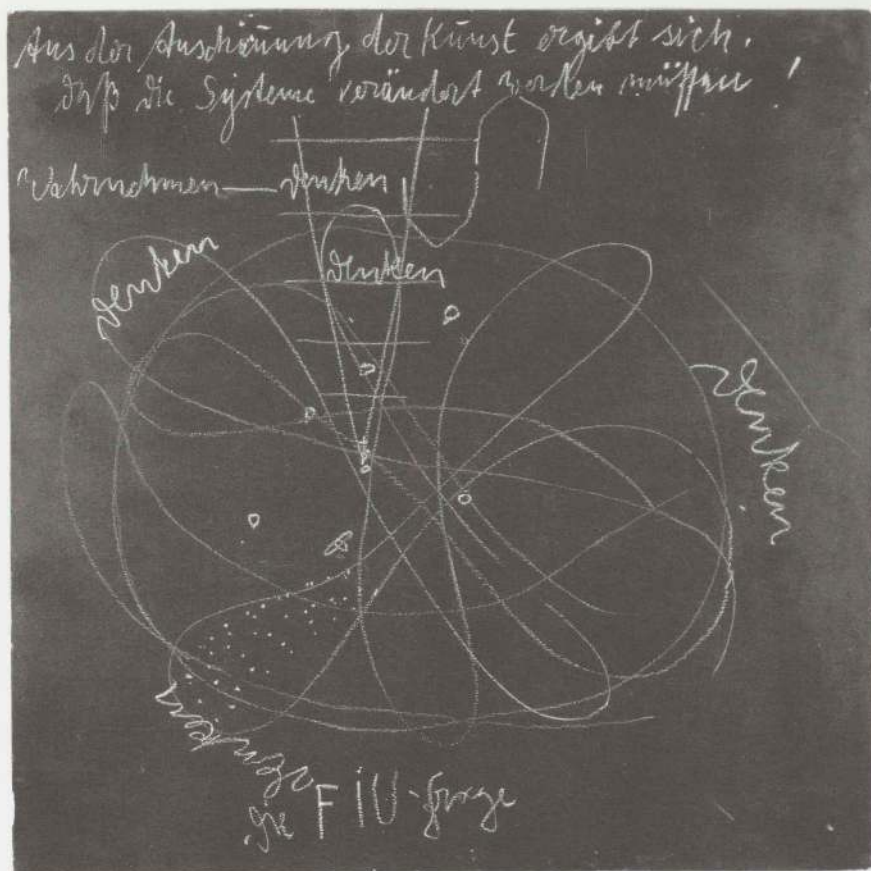 Aus der Anschauung der Kunst ergibt sich,
daß die Systeme verändert werden müssen!
Wahrnehmen — denken
denken
denken
denken
denken
die FIU-frage